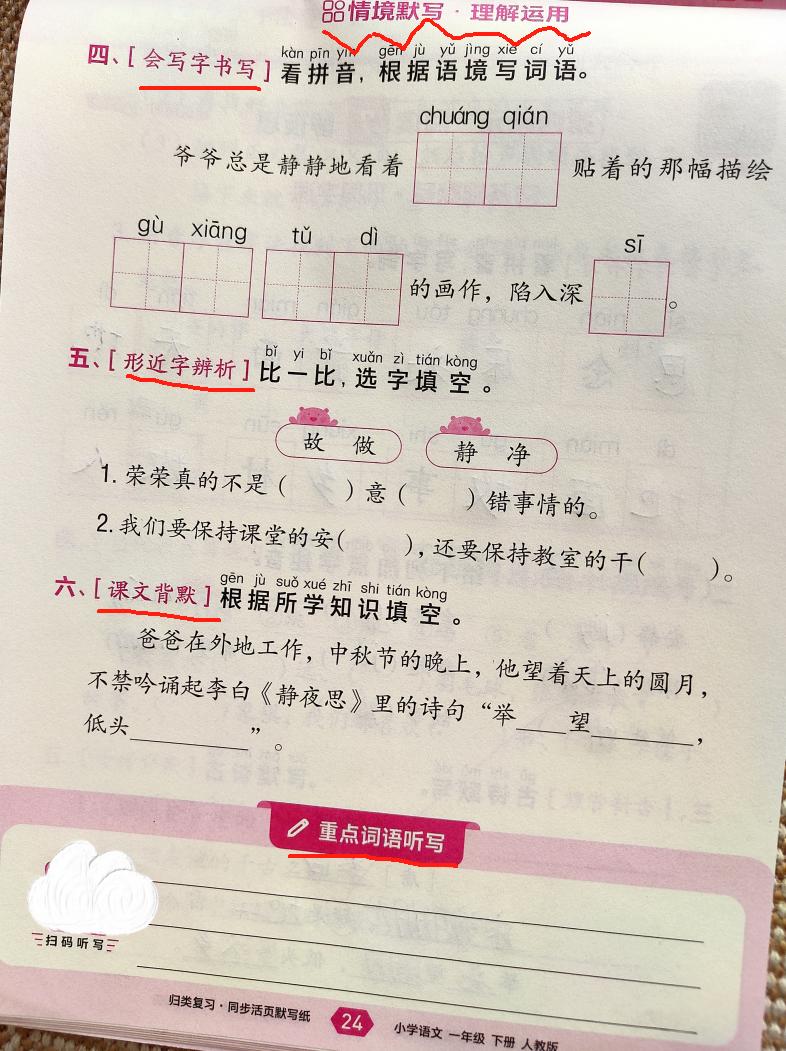 情境默写·理解运用
kàn pīn yīn gēn jù yǔ jìng xiě cí yǔ
四、[会写字书写]看拼音,根据语境写词语。
chuáng qián
爷爷总是静静地看着 贴着的那幅描绘
gù xiāng tǔ dì sī
的画作,陷入深 。
bǐ yi bǐ xuǎn zì tián kòng
五、[形近字辨析]比一比,选字填空。
故 做 静 净
1. 荣荣真的不是( )意( )错事情的。
2. 我们要保持课堂的安( ),还要保持教室的干( )。
gēn jù suǒ xué zhī shi tián kòng
六、[课文背默]根据所学知识填空。
爸爸在外地工作,中秋节的晚上,他望着天上的圆月,
不禁吟诵起李白《静夜思》里的诗句“举____望________,
低头_________”。
重点词语听写
扫码听写
归类复习·同步活页默写纸 24 小学语文 一年级 下册 人教版